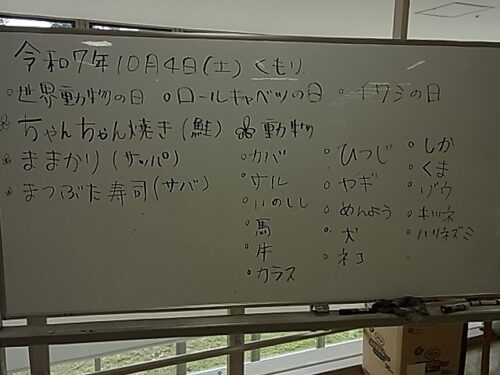 令和7年10月4日(土) くもり
○世界動物の日 ○ロールキャベツの日 ○イワシの日
ちゃんちゃん焼き(鮭)
ままかり(サッパ)
まつぶた寿司(サバ)
動物
○カバ
○サル
○いのしし
○馬
○牛
○カラス
○ひつじ
○ヤギ
○めんよう
○犬
○ネコ
○しか
○くま
○ゾウ
○キツネ
○ハリネズミ